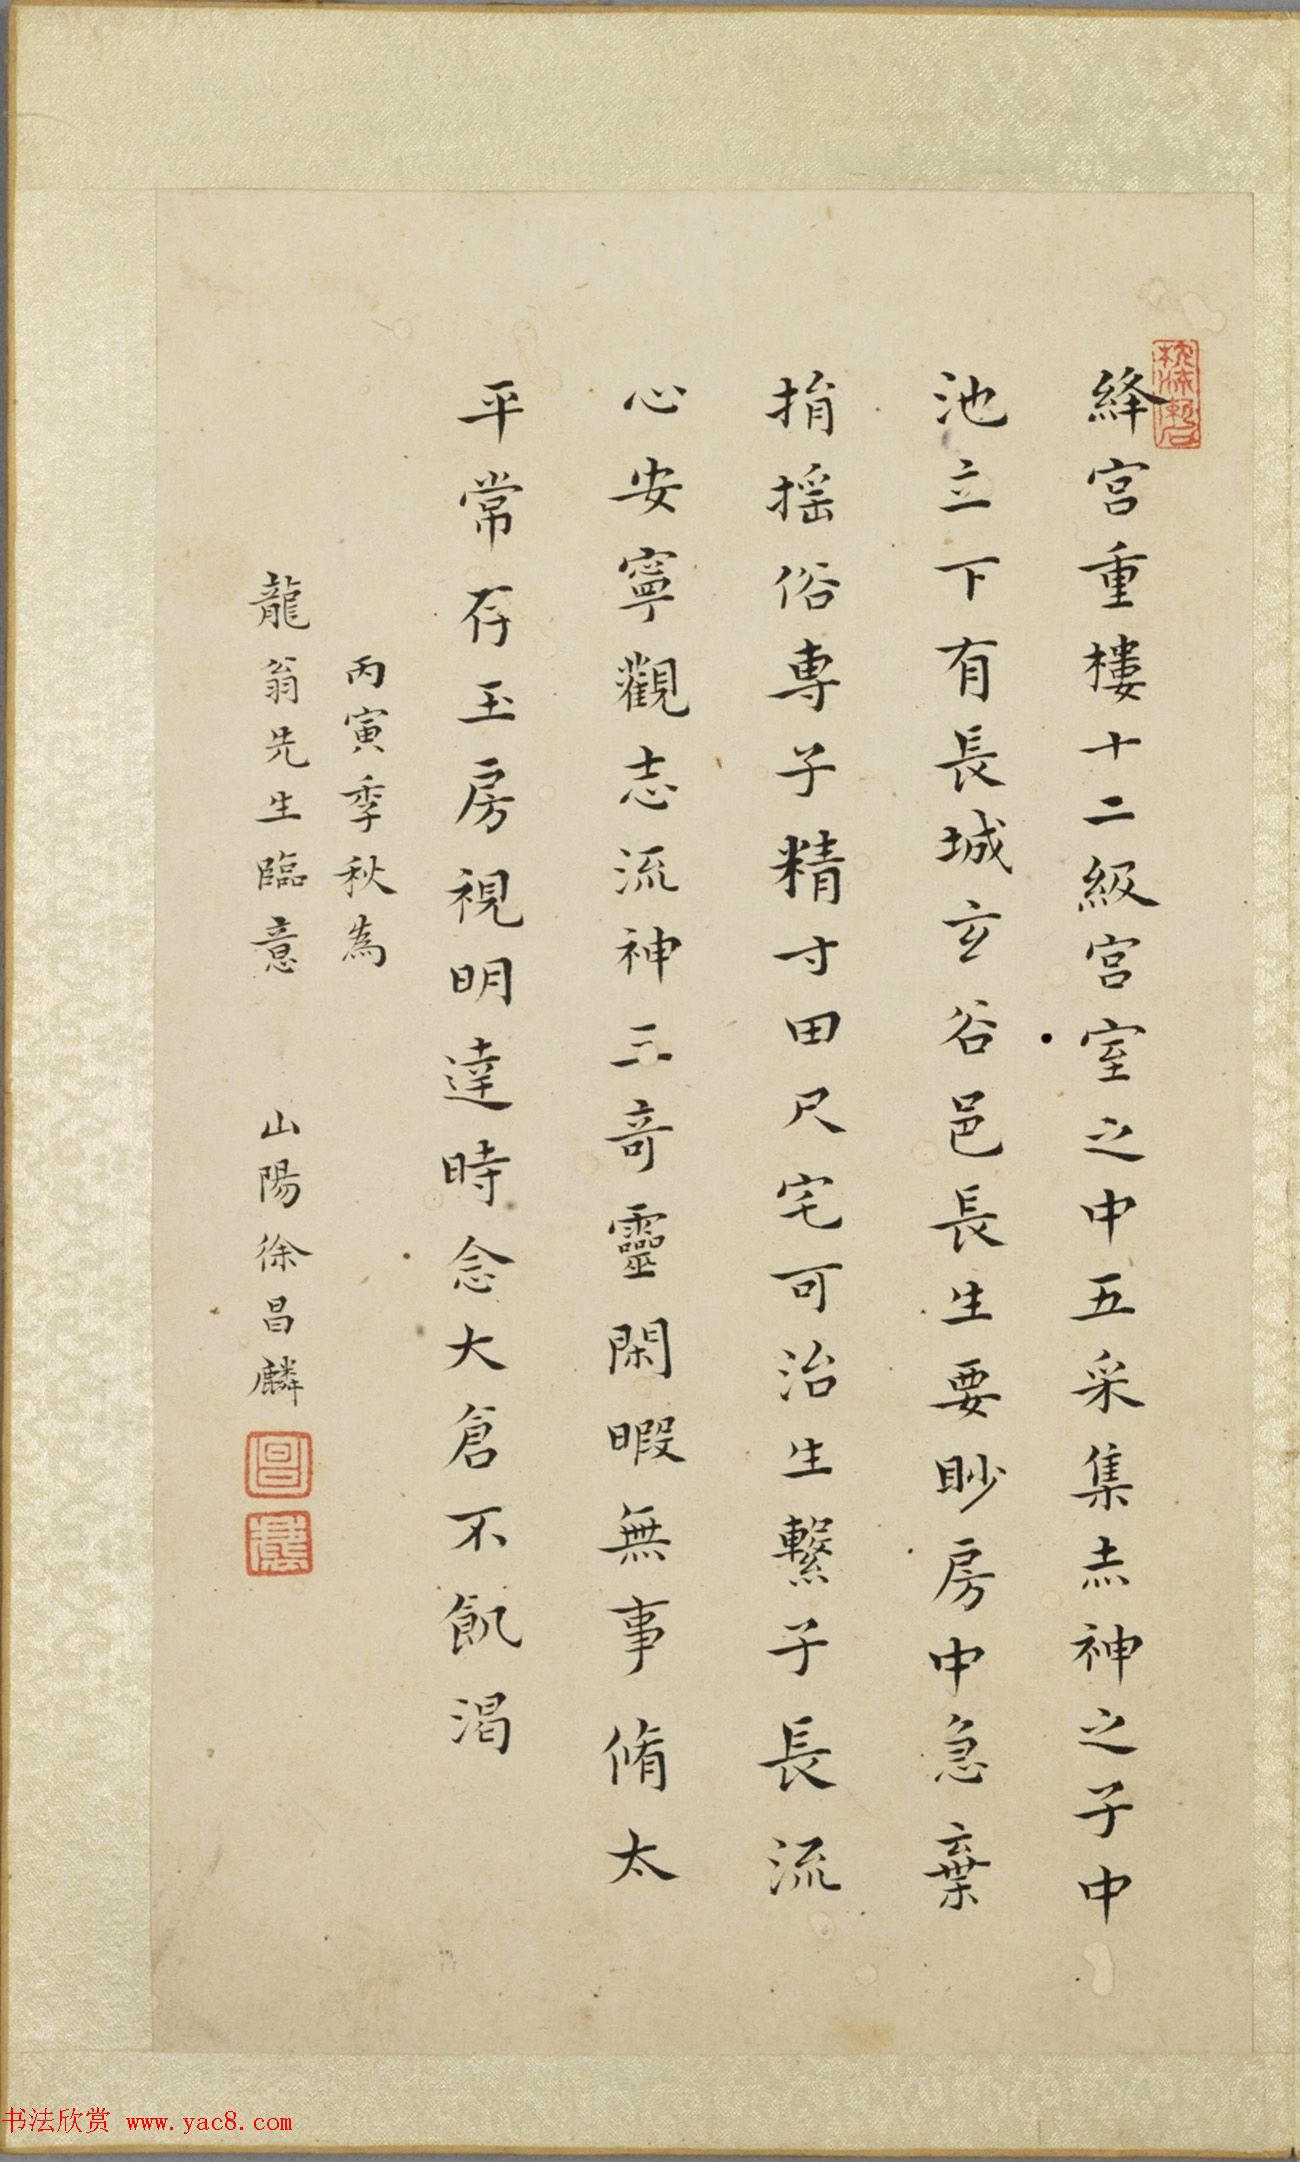 絳宮重樓十二級宮室之中五采集赤神之子中
池立下有長城玄谷邑長生要眇房中急棄
捐搖俗専子精寸田尺宅可治生繫子長流
心安寧觀志流神三奇靈閑暇無事脩太
平常存玉房視明達時念大倉不飢渴
丙寅季秋為
龍翁先生臨意 山陽徐昌麟
书法欣赏 www.yac8.com